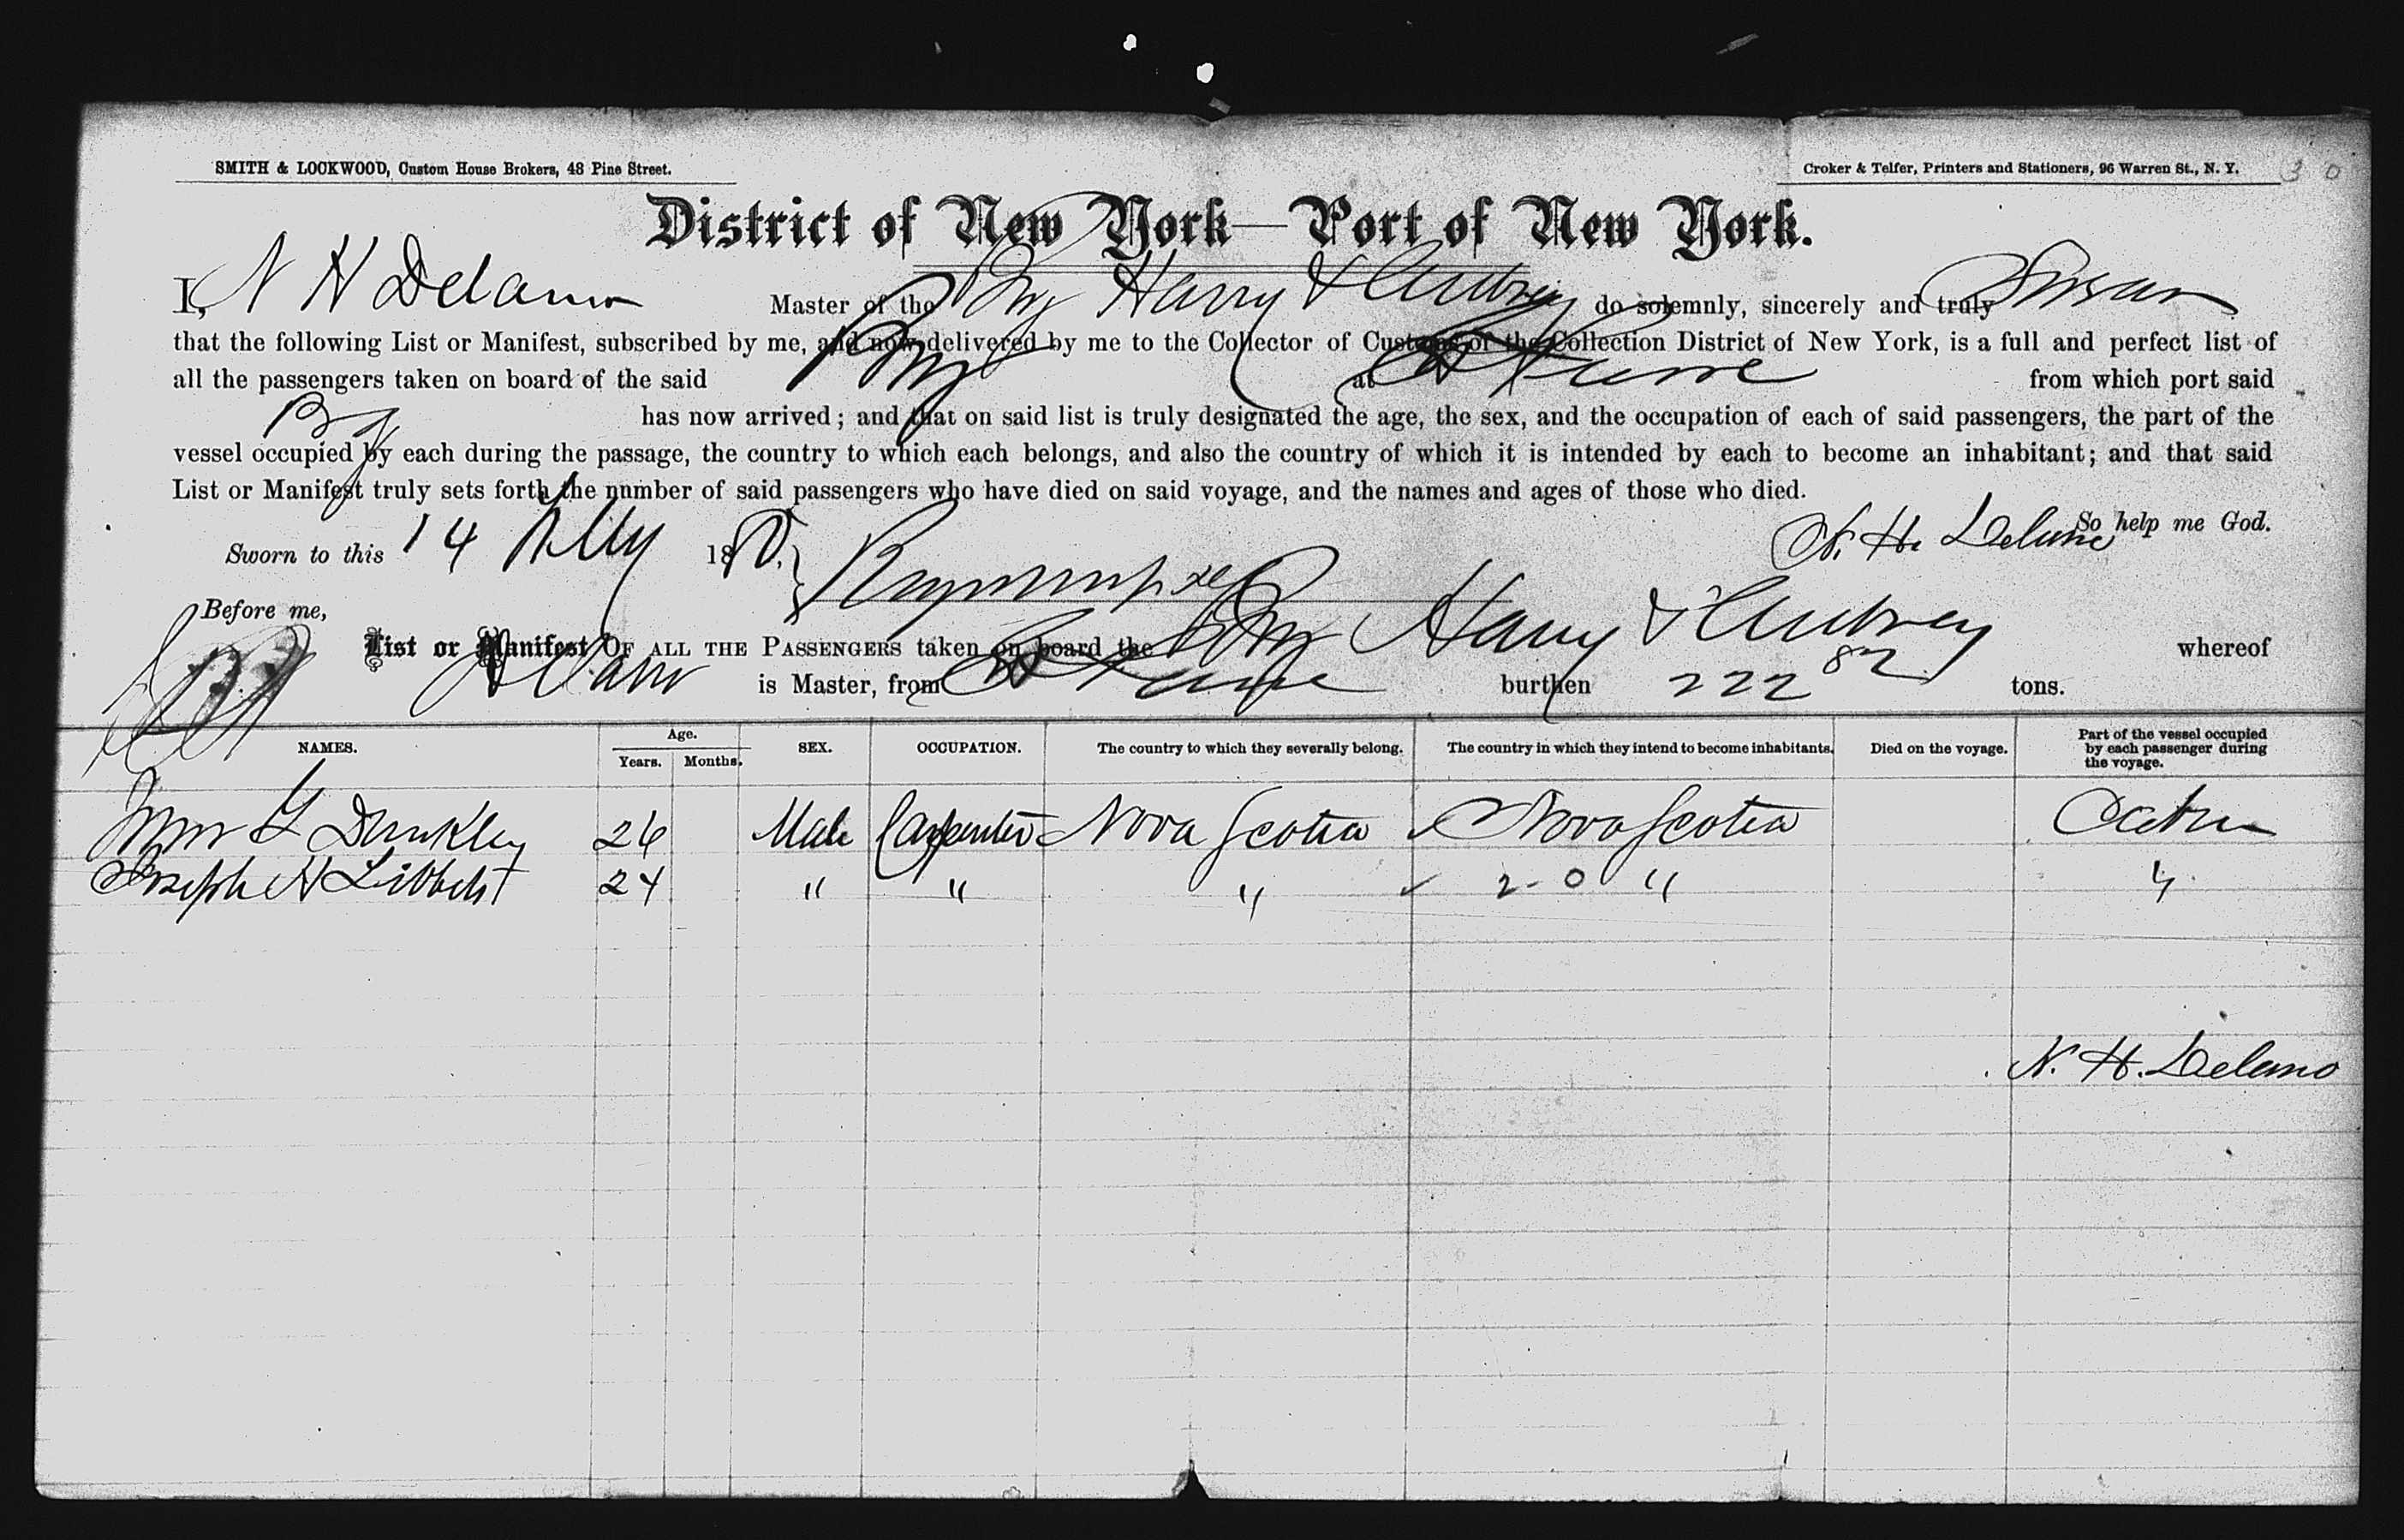 SMITH & LOCKWOOD, Custom House Brokers, 48 Pine Street.
Croker & Telfer, Printers and Stationers, 96 Warren St., N. Y. 30
District of New York—Port of New York.
I, N H Delano Master of the Brig Harry & Aubrey do solemnly, sincerely and truly Swear
that the following List or Manifest, subscribed by me, and now delivered by me to the Collector of Customs of the Collection District of New York, is a full and perfect list of
all the passengers taken on board of the said Brig at St Pierre from which port said
Brig has now arrived; and that on said list is truly designated the age, the sex, and the occupation of each of said passengers, the part of the
vessel occupied by each during the passage, the country to which each belongs, and also the country of which it is intended by each to become an inhabitant; and that said
List or Manifest truly sets forth the number of said passengers who have died on said voyage, and the names and ages of those who died.
So help me God.
Sworn to this 14 May 1880. N. H. Delano
Before me,
List or Manifest OF ALL THE PASSENGERS taken on board the Brig Harry & Aubrey whereof
Delano is Master, from St Pierre burthen 222 82 tons.
NAMES. Age. Years. Months. SEX. OCCUPATION. The country to which they severally belong. The country in which they intend to become inhabitants. Died on the voyage. Part of the vessel occupied by each passenger during the voyage.
Dunkley 26 Male Carpenter Nova Scotia Nova Scotia Cabin
Joseph H 24 " " " 2-0 " "
N. H. Delano